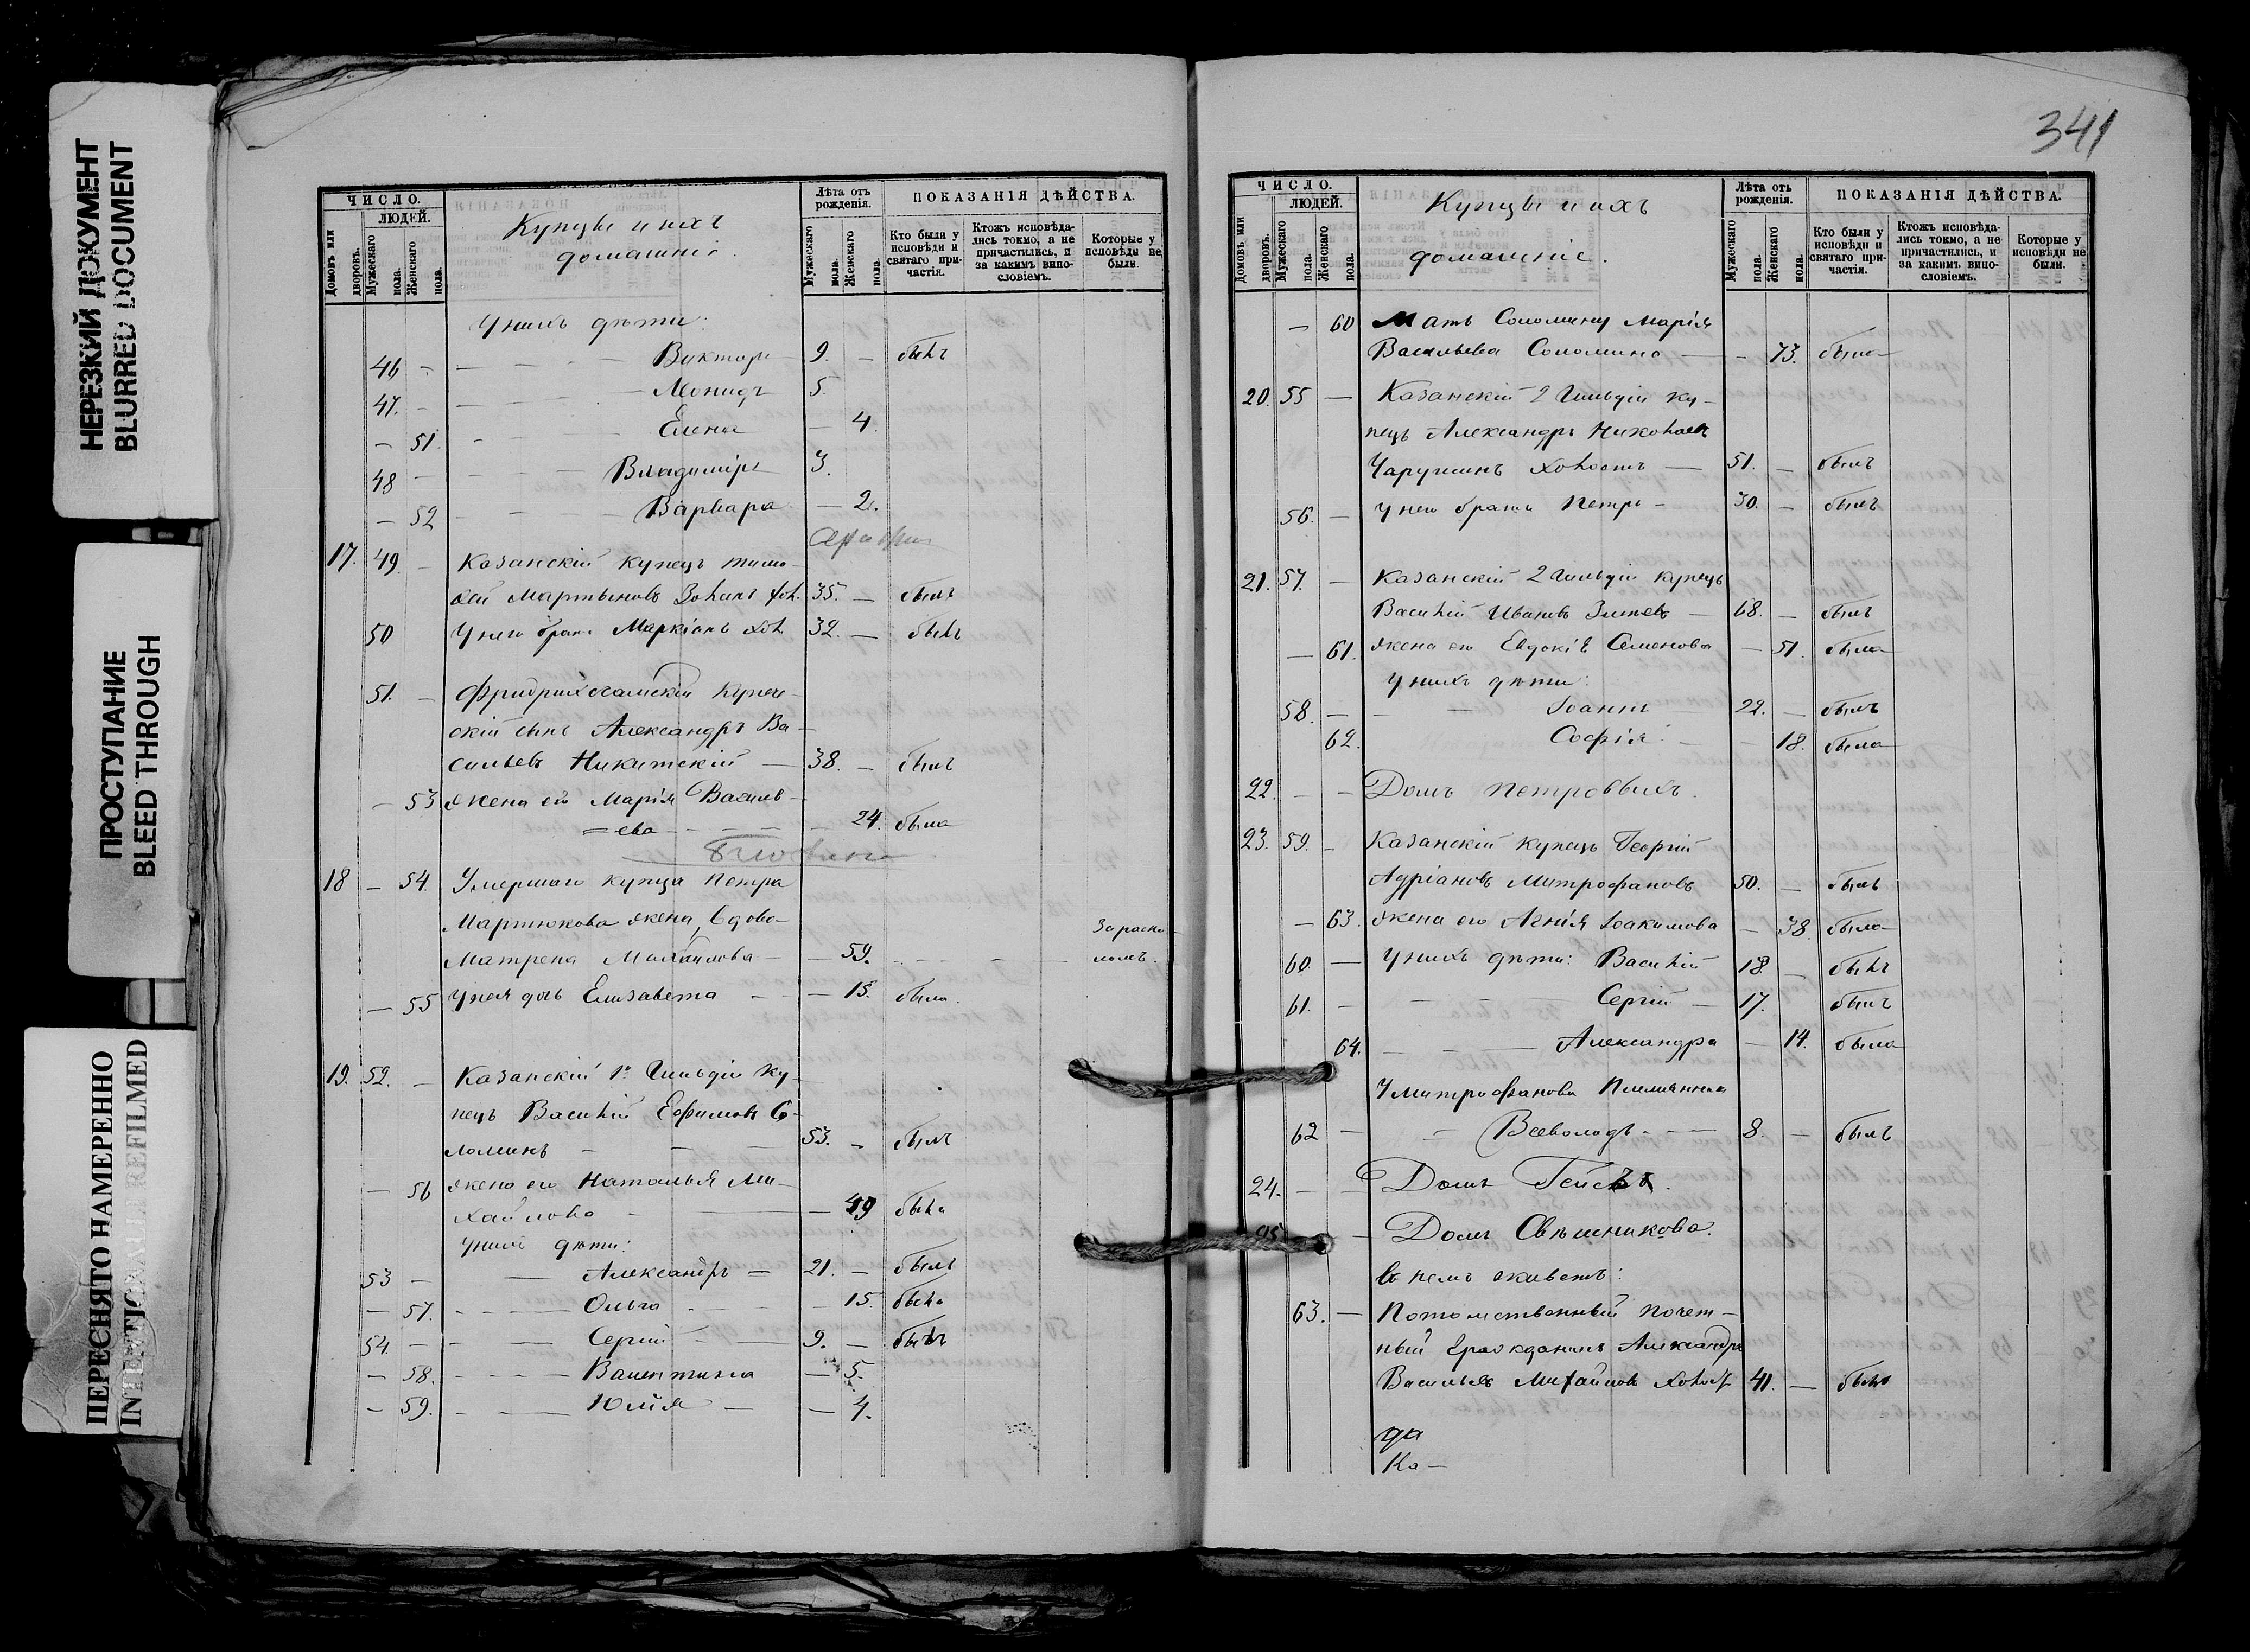 НЕРЕЗКИЙ ДОКУМЕНТ
BLURRED DOCUMENT
ПРОСТУПАНИЕ
BLEED THROUGH
ПЕРЕСНЯТО НАМЕРЕННО
INTENTIONALLY REFILMED
ЧИСЛО.
ЛЮДЕЙ.
Домовъ или дворовъ.
Мужескаго пола.
Женскаго пола.
Купцы и ихъ
домашніе.
Лѣта отъ рожденія.
Мужескаго пола.
Женскаго пола.
ПОКАЗАНІЯ ДѢЙСТВА.
Кто были у исповѣди и святаго причастія.
Ктожъ исповѣдались токмо, а не причастились, и за какимъ винословіемъ.
Которые у исповѣди не были.
У нихъ дѣти:
46 - - - - Викторъ 9. - былъ
47. - - - - Леонидъ 5.
- 51. - - - Елена - 4.
48 - - - - Владиміръ 3.
- 52 - - - Варвара - 2.
17. 49. - Казанскій купецъ Тимо-
фей Мартыновъ хол. 35. - былъ
50 У него братъ Маркіанъ хол. 32. - былъ
51. - Фридрихсгамскій купече-
скій сынъ Александръ Ва-
сильевъ Никитскій - 38. - былъ
- 53. Жена его Марія Василь-
=ева - - - - 24. была
18 - 54. Умершаго купца Петра
Мартюкова жена, вдова
Матрена Михайлова - - 59. - - - - За раско-
ломъ.
- 55 У нея дочь Елизавета - - 15. была.
19. 52. - Казанскій 1й Гильдіи ку-
пецъ Василій Ефимовъ Со-
ломинъ - - - 53. - былъ
- 56 Жена его Наталья Ми-
хайлова - - - 49 была
У нихъ дѣти:
53 - - Александръ - 21. - былъ
- 57. - - - Ольга - - 15. была
54. - - - Сергій - - 9. - былъ
- 58. - - - Валентина - 5.
- 59. - - Юлія - - 4.
341
ЧИСЛО.
ЛЮДЕЙ.
Домовъ или дворовъ.
Мужескаго пола.
Женскаго пола.
Купцы и ихъ
домашніе.
Лѣта отъ рожденія.
Мужескаго пола.
Женскаго пола.
ПОКАЗАНІЯ ДѢЙСТВА.
Кто были у исповѣди и святаго причастія.
Ктожъ исповѣдались токмо, а не причастились, и за какимъ винословіемъ.
Которые у исповѣди не были.
- 60 Мать Соломину Марія
Васильева Соломина - - 73. была
20. 55 - Казанскій 2 Гильдіи ку-
пецъ Александръ Николаевъ
Чарушинъ холостъ - 51. - былъ
56. - У него братъ Петръ - 30. - былъ
21. 57. - Казанскій 2 Гильдіи купецъ
Василій Ивановъ - 68. - былъ
- 61. Жена его Евдокія Семенова - 51. была
У нихъ дѣти:
58. - - - Іоаннъ 22. - былъ
62. Софія - - 18. была
22. - - Домъ Петровыхъ.
23. 59. - Казанскій купецъ Георгій
Адріановъ Митрофановъ 50. - былъ
- 63. Жена его Агнія Іоакимова - 38. была
60. - У нихъ дѣти: Василій 18. - былъ
61. - - - - Сергій - 17. былъ
64. - - - Александра - 14. была
У Митрофанова Племянникъ
62 - - Всеволодъ - - 8. - былъ
24. - - Домъ
25 - Домъ Свѣшникова.
Въ немъ живетъ:
63. - Потомственный почет-
ный гражданинъ Александръ
Васильевъ Михайловъ холост. 41. - былъ
да
Ка-